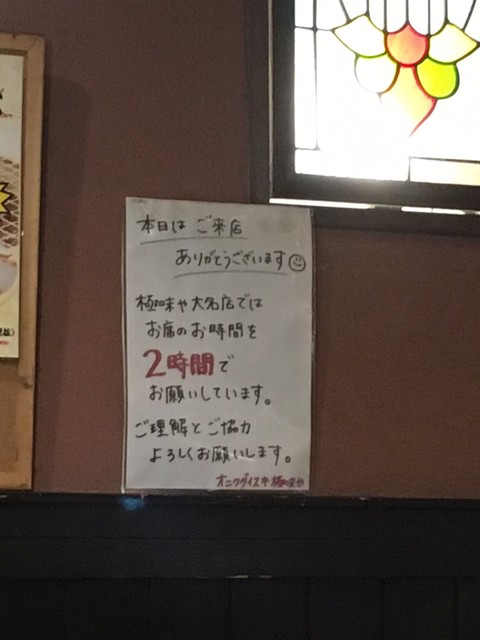 本日は ご来店
ありがとうございます
極味や大名店では
お席のお時間を
2時間で
お願いしています。
ご理解とご協力
よろしくお願いします。
オニクダイスキ極味や